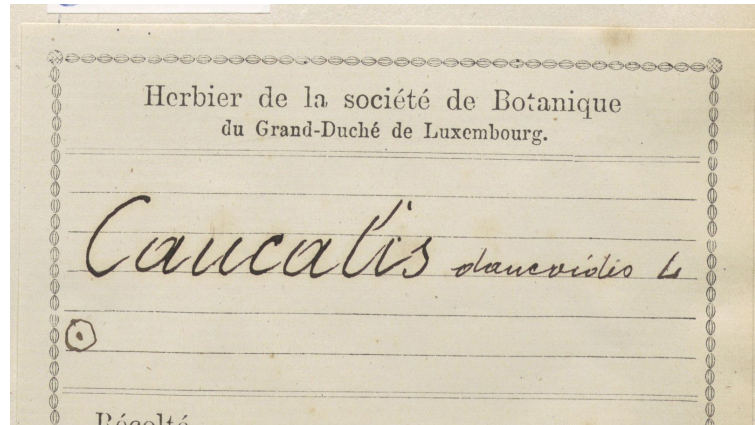 Herbier de la société de Botanique
du Grand-Duché de Luxembourg.
Caucalis daucoidis L
☉
Récolté